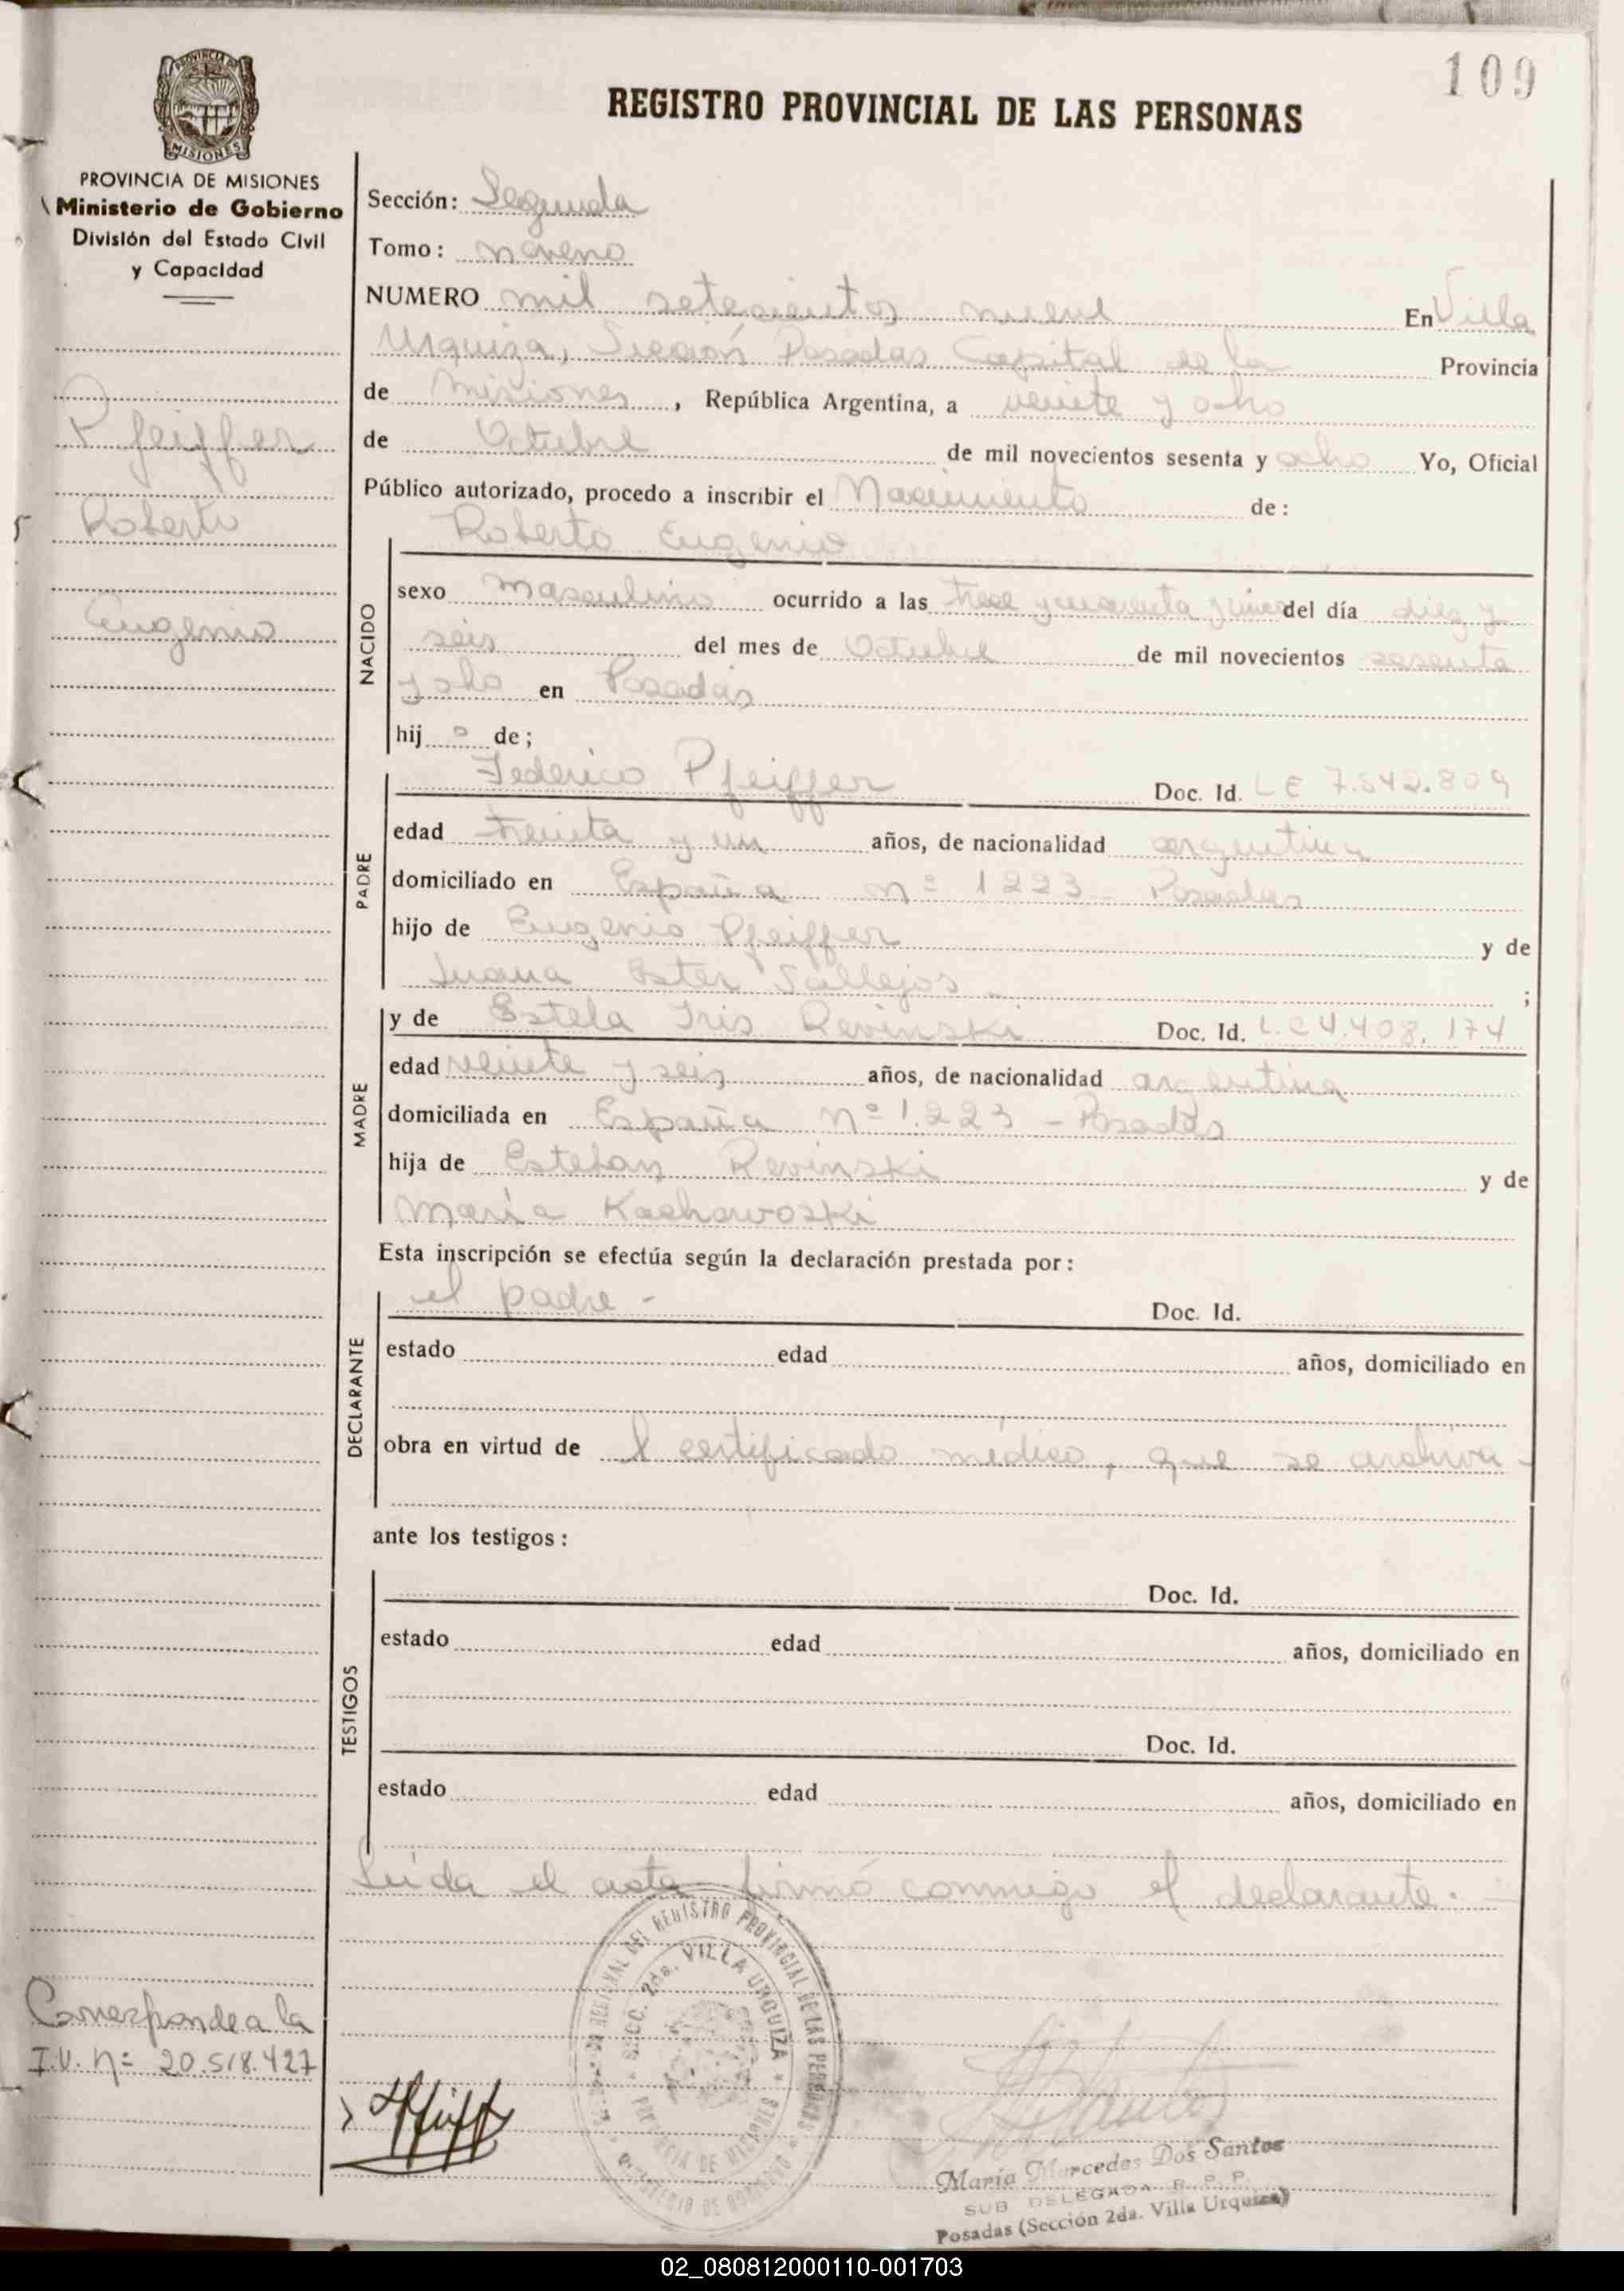 109
REGISTRO PROVINCIAL DE LAS PERSONAS
PROVINCIA DE MISIONES
Ministerio de Gobierno
División del Estado Civil
y Capacidad
Pfeiffer
Roberto
Eugenio
Sección: Segunda
Tomo: noveno
NUMERO mil setecientos nueve En Villa
Urquiza, Sección Posadas Capital de la Provincia
de Misiones, República Argentina, a veinte y ocho
de Octubre de mil novecientos sesenta y ocho Yo, Oficial
Público autorizado, procedo a inscribir el Nacimiento de:
Roberto Eugenio
NACIDO
sexo masculino ocurrido a las trece y cuarenta y cinco del día diez y
seis del mes de Octubre de mil novecientos sesenta
y ocho en Posadas
hijo de;
PADRE
Federico Pfeiffer Doc. Id. LE 7.542.809
edad treinta y un años, de nacionalidad argentina
domiciliado en España nº 1223 - Posadas
hijo de Eugenio Pfeiffer y de
Juana Ester Vallejos - ;
MADRE
y de Estela Iris Revinski Doc. Id. L.C 4.408.174
edad veinte y seis años, de nacionalidad argentina
domiciliada en España Nº 1.223 - Posadas
hija de Esteban Revinski y de
María Kachowoski
Esta inscripción se efectúa según la declaración prestada por:
DECLARANTE
el padre - Doc. Id.
estado edad años, domiciliado en
obra en virtud de l certificado médico, que se archiva -
ante los testigos:
TESTIGOS
Doc. Id.
estado edad años, domiciliado en
Doc. Id.
estado edad años, domiciliado en
Leída el acta firmó conmigo el declarante. -
DEL REGISTRO PROVINCIAL DE LAS PERSONAS
SECC. 2da. VILLA URQUIZA
PROVINCIA DE MISIONES
MINISTERIO DE GOBIERNO
Corresponde a la
I.U. nº 20.518.427
María Mercedes Dos Santos
SUB DELEGADA R. P. P.
Posadas (Sección 2da. Villa Urquiza)
02_080812000110-001703